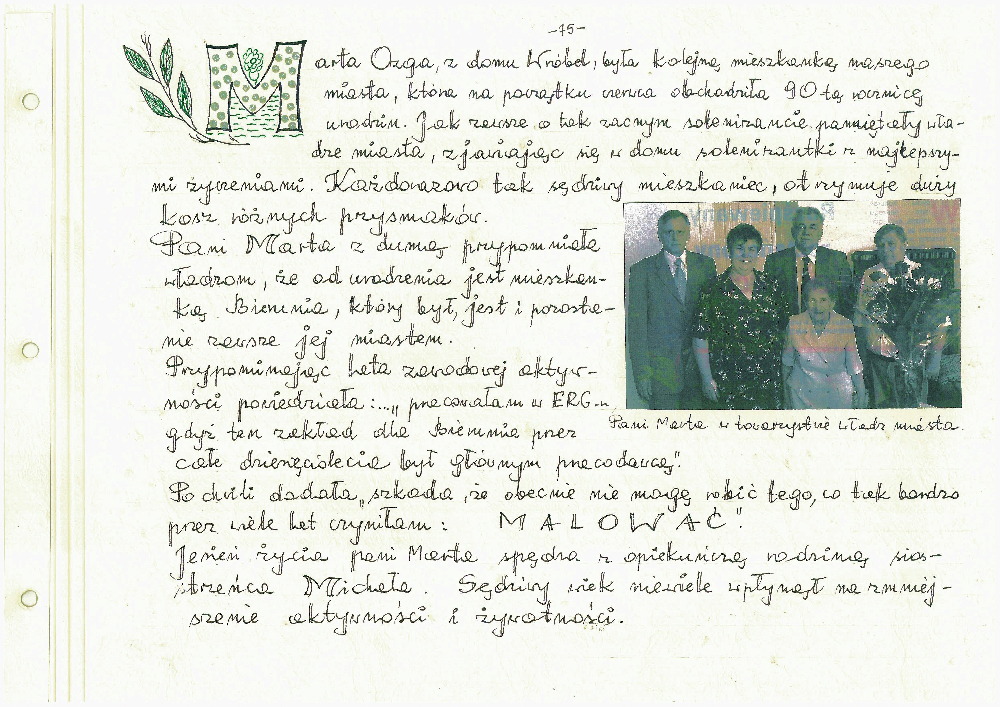 -15-
Marta Ozga, z domu Wróbel, była kolejną mieszkanką naszego
miasta, która na początku czerwca obchodziła 90tą rocznicę
urodzin. Jak zawsze o tak zacnym solenizancie pamiętały wła-
dze miasta, zjawiając się w domu solenizantki z najlepszy-
mi życzeniami. Każdorazowo tak sędziwy mieszkaniec, otrzymuje duży
kosz różnych przysmaków.
Pani Marta z dumą przypomniała
władzom, że od urodzenia jest mieszkan-
ką Bierunia, który był, jest i pozosta-
nie zawsze jej miastem.
Przypominając lata zawodowej aktyw-
ności powiedziała:..." pracowałam w ERG-u
gdyż ten zakład dla Bierunia przez
całe dziesięciolecia był głównym pracodawcą".
Po chwili dodała „szkoda, że obecnie nie mogę robić tego, co tak bardzo
przez wiele lat czyniłam: MALOWAĆ".
Jesień życia pani Marta spędza z opiekuńczą rodziną sios-
trzeńca Michała. Sędziwy wiek niewiele wpłynął na zmniej-
szenie aktywności i żywotności.
Pani Marta w towarzystwie władz miasta.